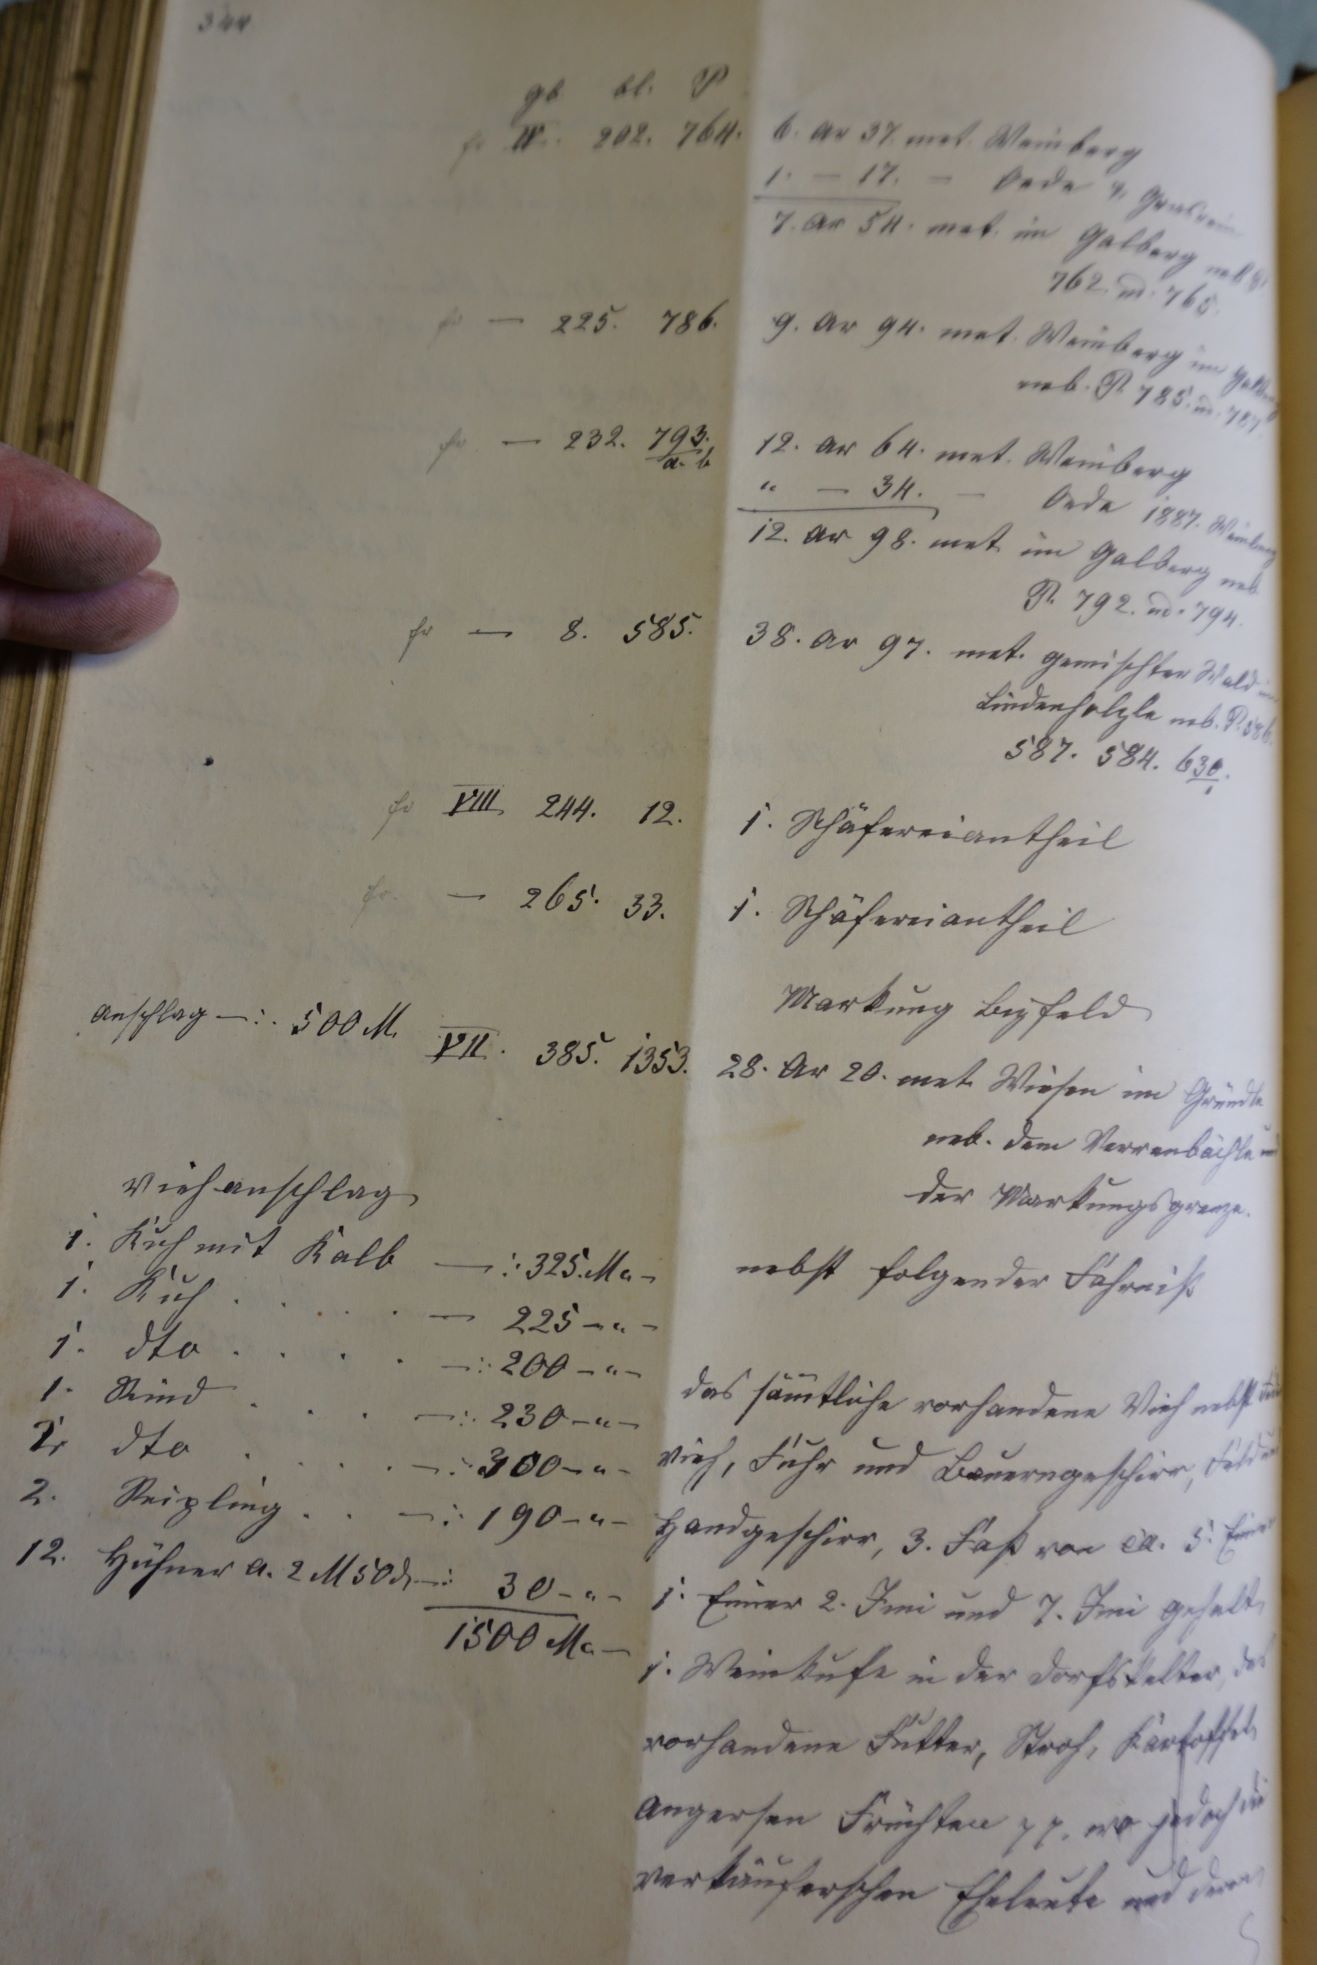 344
gb bl. P
fr IV. 202. 764. 6. Ar 37. met. Weinberg
1. — 17. — Oede & Grasrain
7. Ar 54. met. im Galberg neb P.
762. u. 765.
fr — 225. 786. 9. Ar 94. met. Weinberg im Galberg
neb. P. 785. u. 787.
fr — 232. 793. a. b 12. Ar 64. met. Weinberg
" — 34. — Oede 1887. Weinberg
12. Ar 98. met. im Galberg neb
P. 792. u. 794.
fr — 8. 585. 38. Ar 97. met. gemischter Wald im
Lindenhölzle neb. P. 586.
587. 584. 630/1.
fr VIII 244. 12. 1. Schäfereiantheil
fr. — 265. 33. 1. Schäfereiantheil
Markung Bizfeld
Anschlag —:. 500 M. VII. 385. 1353. 28. Ar 20. met. Wiesen im Gründle
neb. dem Verrenbächle und
der Markungsgrenze.
nebst folgender Fahrniß
Viehanschlag
1. Kuh mit Kalb —: 325. M. " —
1. Kuh . . . . — 225 — " —
1. dto . . . . —: 200 — " —
1. Rind . . . —: 230 — " —
1. dto . . . . —: 300 — " —
2. Reipling . . —: 190 — " —
12. Hühner a. 2 M 50 d —: 30 — " —
1500 M. —
das sämtliche vorhandene Vieh nebst
vieh, Fuhr und Bauerngeschirr, Feld und
Handgeschirr, 3. Faß von ca. 5. Eimer
1. Eimer 2. Imi und 7. Imi gehalt,
1. Weinkufe in der Dorfskelter, das
vorhandene Futter, Stroh, Kartoffel,
Angersen Früchten pp. wo jedoch die
verkäuferschen Eheleute und deren